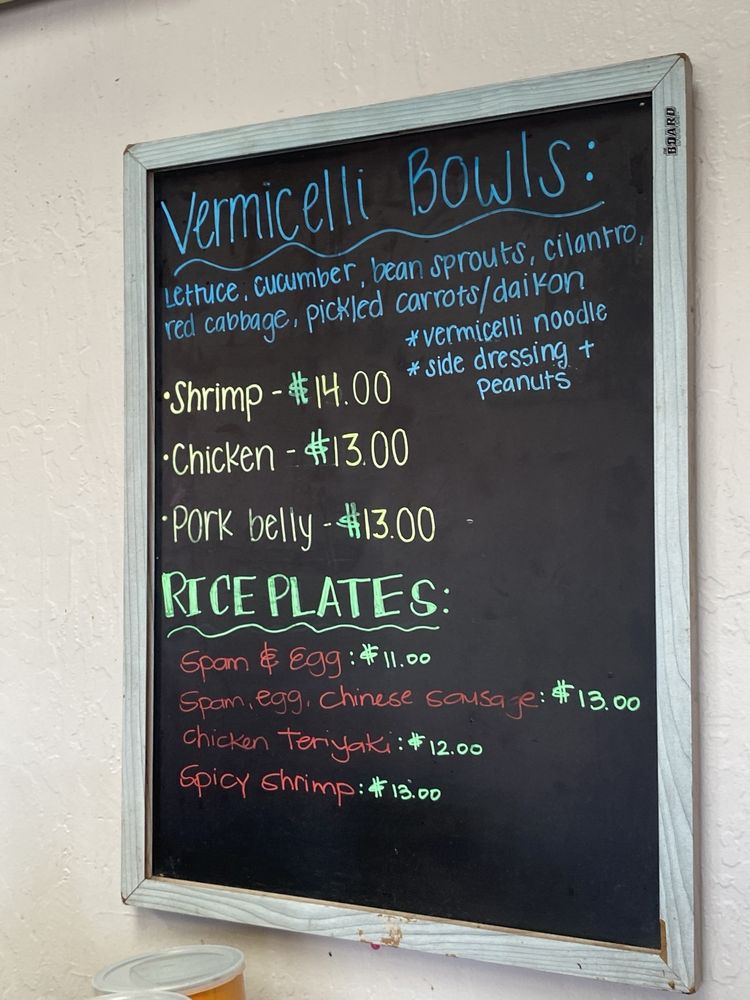 Vermicelli Bowls:
Lettuce, cucumber, bean sprouts, cilantro,
red cabbage, pickled carrots/daikon
*vermicelli noodle
*side dressing +
peanuts
•Shrimp - $14.00
•Chicken - $13.00
•Pork belly - $13.00
RICE PLATES:
Spam & Egg: $11.00
Spam, egg, Chinese sausage: $13.00
Chicken Teriyaki: $12.00
Spicy shrimp: $13.00
BOARD